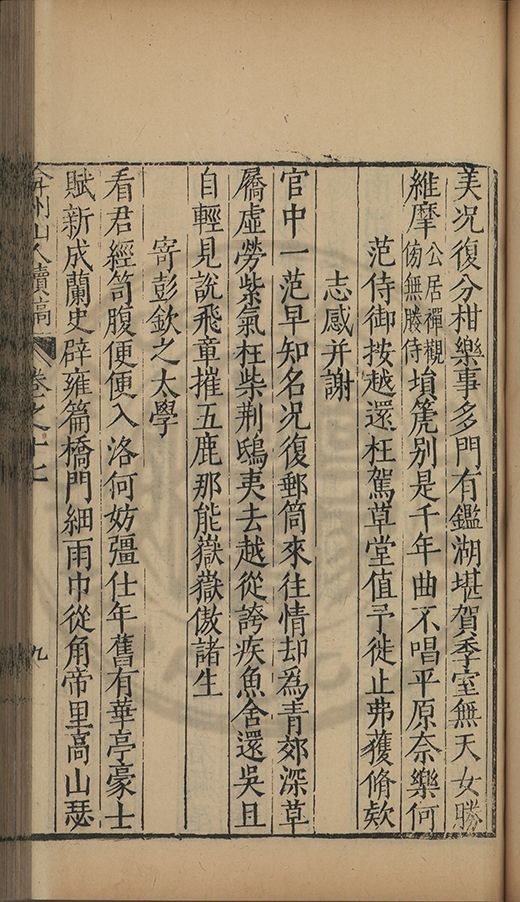 美况復分柑樂事多門有鑑湖堪賀季室無天女勝
維摩公居禪觀傍無媵侍塤篪别是千年曲不唱平原奈樂何
范侍御按越還枉駕草堂值予徙止弗獲脩欵
志感并謝
官中一范早知名况復郵筒來往情却為青郊深草
屩虛勞紫氣枉柴荆鴟夷去越從誇疾魚舍還吳且
自輕見說飛童摧五鹿那能嶽嶽傲諸生
寄彭欽之太學
看君經笥腹便便入洛何妨彊仕年舊有華亭豪士
賦新成蘭史辟雍篇橋門細雨巾從角帝里高山瑟
弇州山人續稿
卷之十七
九